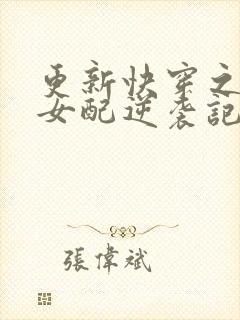 更新快穿之
女配逆袭記
張偉斌